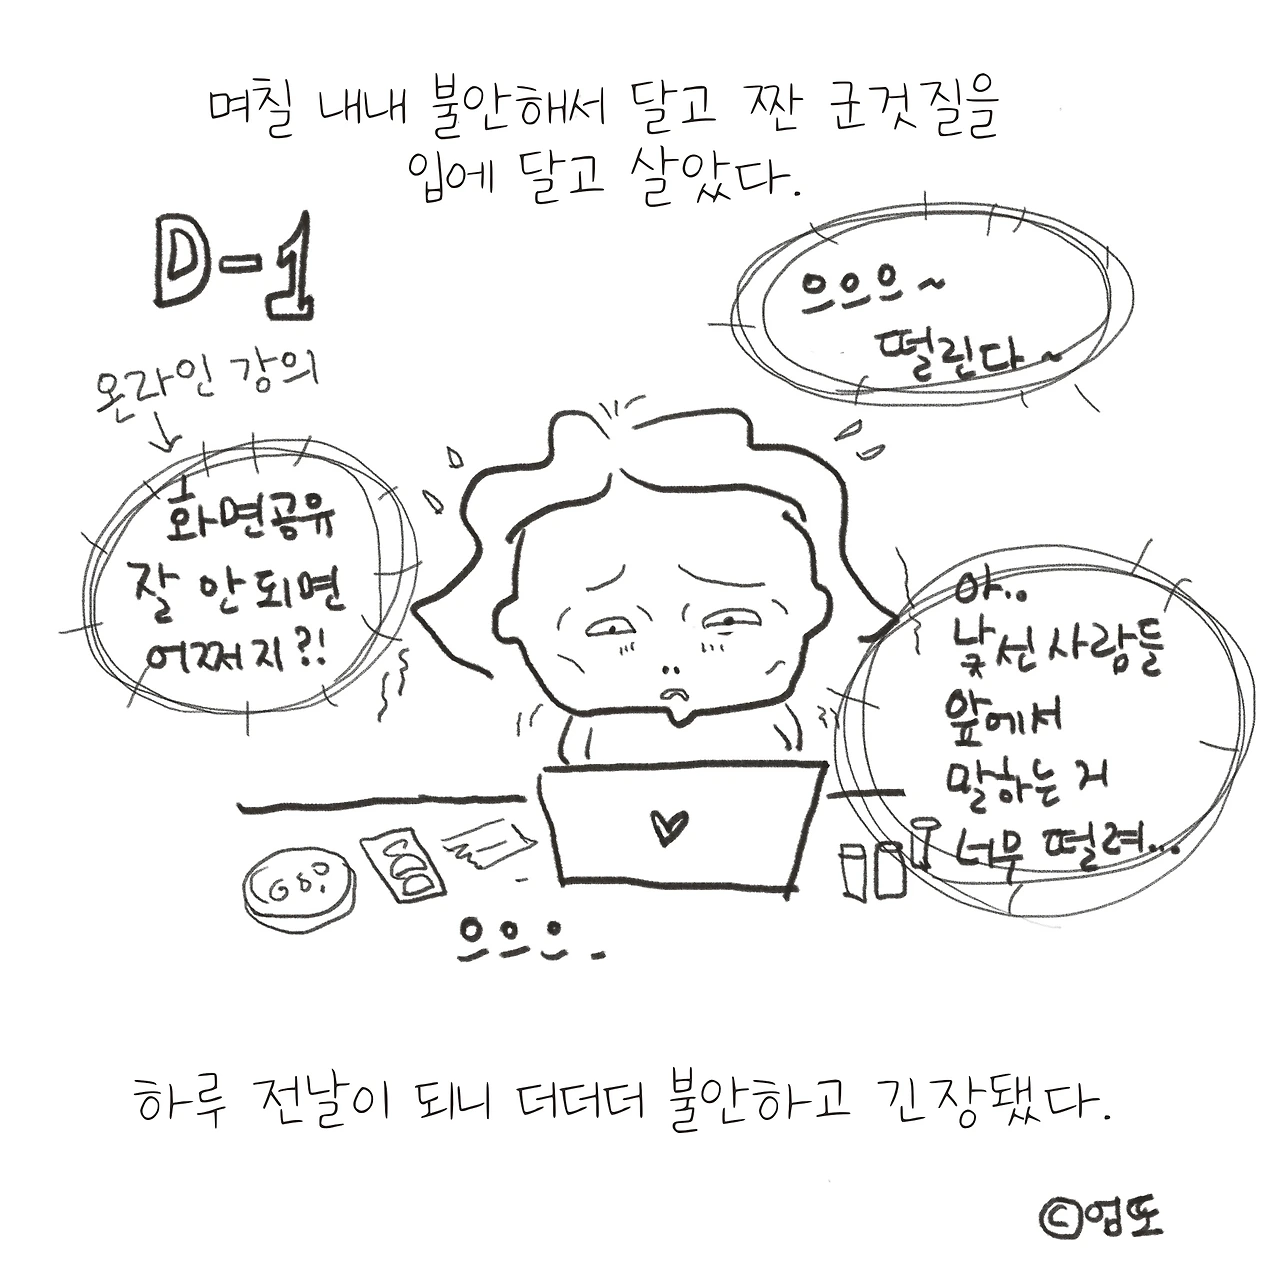 며칠 내내 불안해서 달고 짠 군것질을
입에 달고 살았다.
D-1
으으으~
떨린다~
온라인 강의
화면공유
잘 안되면
어쩌지?!
아..
낯선 사람들
앞에서
말하는 거
너무 떨려...
으으으-
하루 전날이 되니 더더더 불안하고 긴장됐다.
©엄또